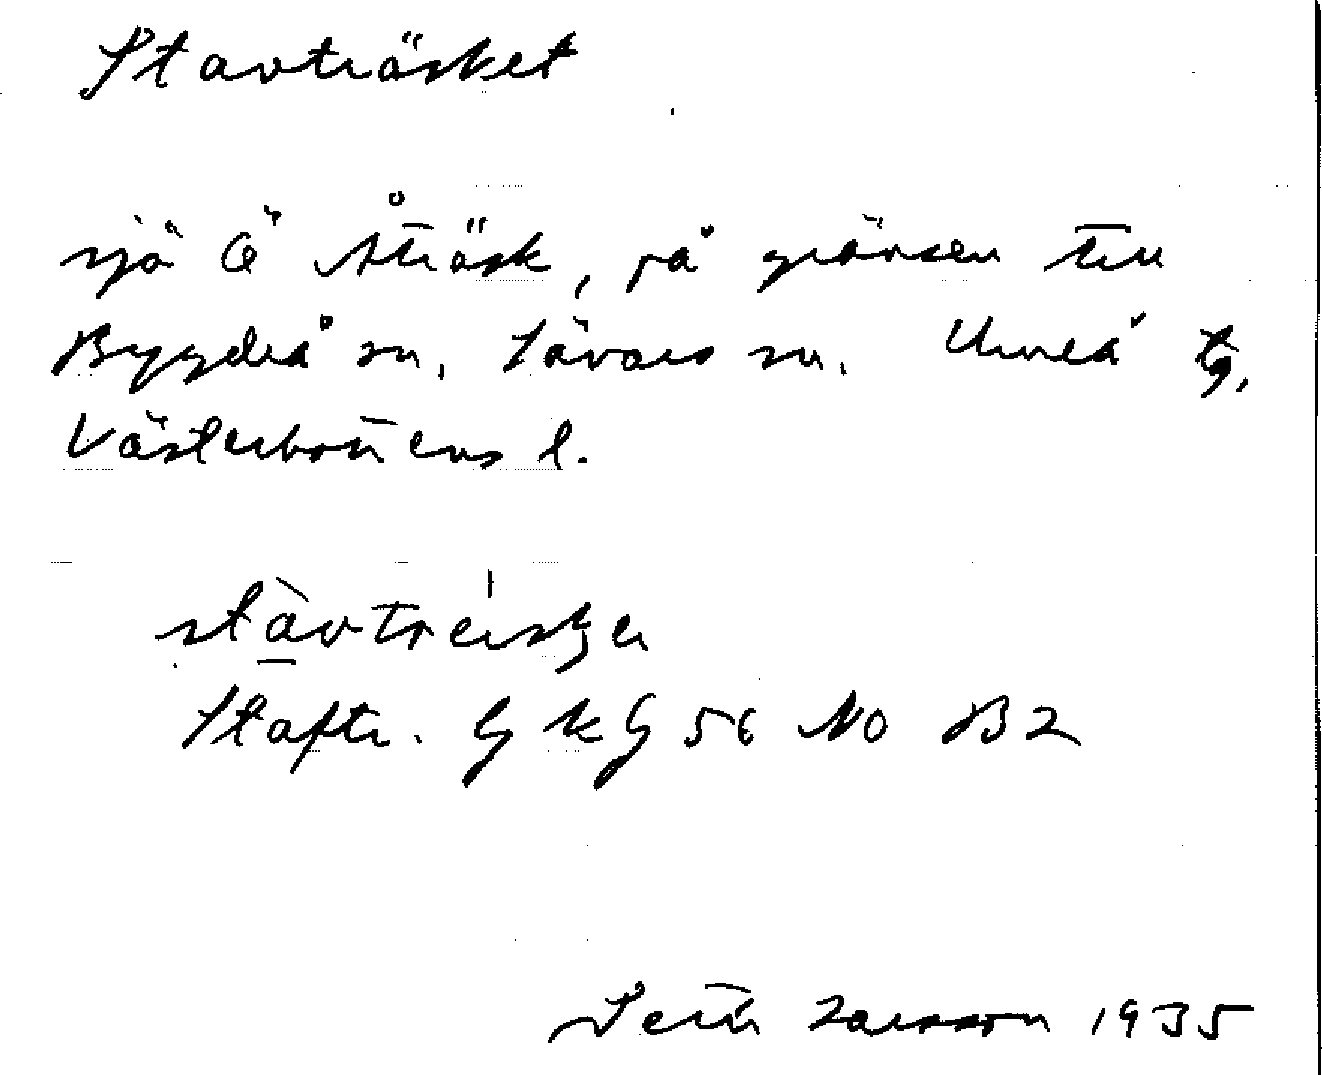 Stavträsket
sjö Ö Åträsk, på gränsen till
Bygdeå sn, Sävars sn. Umeå tg,
Västerbottens l.
stavtreisķen
Staftr. G k G 56 No B2
Seth Larsson 1935